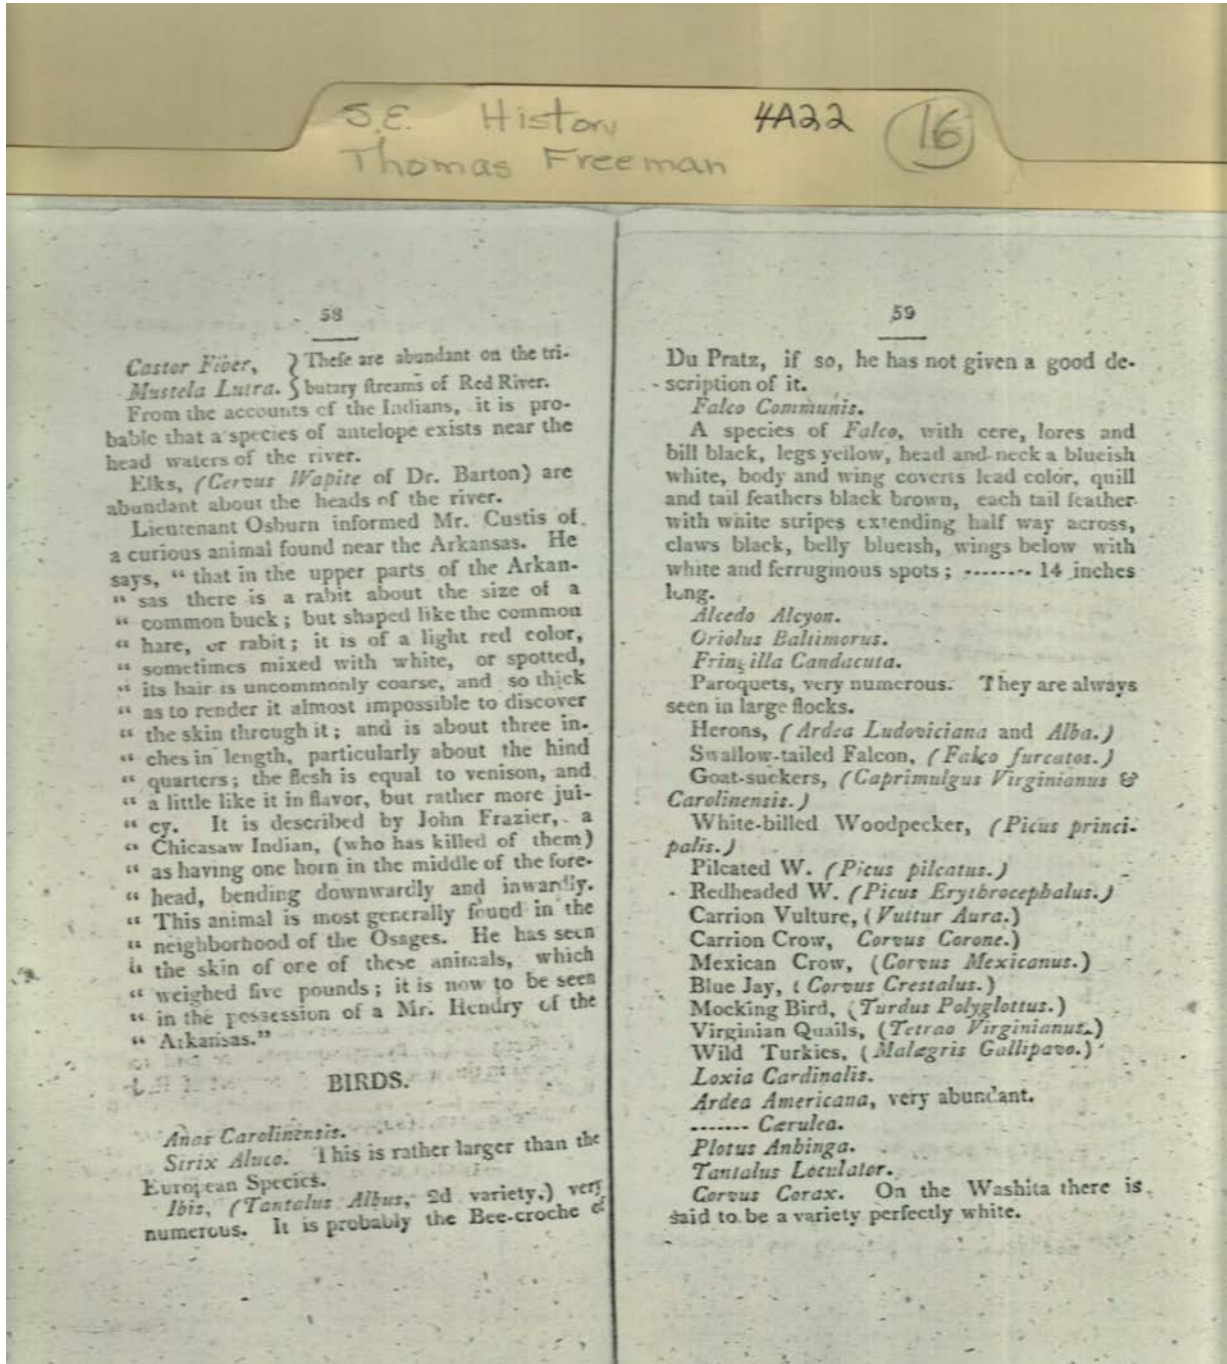 S.E. History 4A22 16
Thomas Freeman
58
Castor Fiber, } Thefe are abundant on the tri-
Mustela Lutra. } butary ftreams of Red River.
From the accounts of the Indians, it is pro-
bable that a species of antelope exists near the
head waters of the river.
Elks, (Cervus Wapite of Dr. Barton) are
abundant about the heads of the river.
Lieutenant Osburn informed Mr. Custis of
a curious animal found near the Arkansas. He
says, “ that in the upper parts of the Arkan-
“ sas there is a rabit about the size of a
“ common buck ; but shaped like the common
“ hare, or rabit ; it is of a light red color,
“ sometimes mixed with white, or spotted,
“ its hair is uncommonly coarse, and so thick
“ as to render it almost impossible to discover
“ the skin through it ; and is about three in-
“ ches in length, particularly about the hind
“ quarters ; the flesh is equal to venison, and
“ a little like it in flavor, but rather more jui-
“ cy. It is described by John Frazier, a
“ Chicasaw Indian, (who has killed of them)
“ as having one horn in the middle of the fore-
“ head, bending downwardly and inwardly.
“ This animal is most generally found in the
“ neighborhood of the Osages. He has seen
“ the skin of one of these animals, which
“ weighed five pounds ; it is now to be seen
“ in the possession of a Mr. Hendry of the
“ Arkansas.”
BIRDS.
Anas Carolinensis.
Strix Aluco. This is rather larger than the
European Species.
Ibis, (Tantalus Albus, 2d variety.) very
numerous. It is probably the Bee-croche of
59
Du Pratz, if so, he has not given a good de-
scription of it.
Falco Communis.
A species of Falco, with cere, lores and
bill black, legs yellow, head and neck a blueish
white, body and wing coverts lead color, quill
and tail feathers black brown, each tail feather
with white stripes extending half way across,
claws black, belly blueish, wings below with
white and ferruginous spots ; ------- 14 inches
long.
Alcedo Alcyon.
Oriolus Baltimorus.
Fringilla Candacuta.
Paroquets, very numerous. They are always
seen in large flocks.
Herons, (Ardea Ludoviciana and Alba.)
Swallow-tailed Falcon, (Falco furcatos.)
Goat-suckers, (Caprimulgus Virginianus &
Carolinensis.)
White-billed Woodpecker, (Picus princi-
palis.)
Pilcated W. (Picus pilcatus.)
Redheaded W. (Picus Erythrocephalus.)
Carrion Vulture, (Vultur Aura.)
Carrion Crow, Corvus Corone.)
Mexican Crow, (Corvus Mexicanus.)
Blue Jay, (Corvus Crestalus.)
Mocking Bird, (Turdus Polyglottus.)
Virginian Quails, (Tetrao Virginianus.)
Wild Turkies, (Malægris Gallipavo.)
Loxia Cardinalis.
Ardea Americana, very abundant.
------- Cærulea.
Plotus Anhinga.
Tantalus Loculator.
Corvus Corax. On the Washita there is
said to be a variety perfectly white.